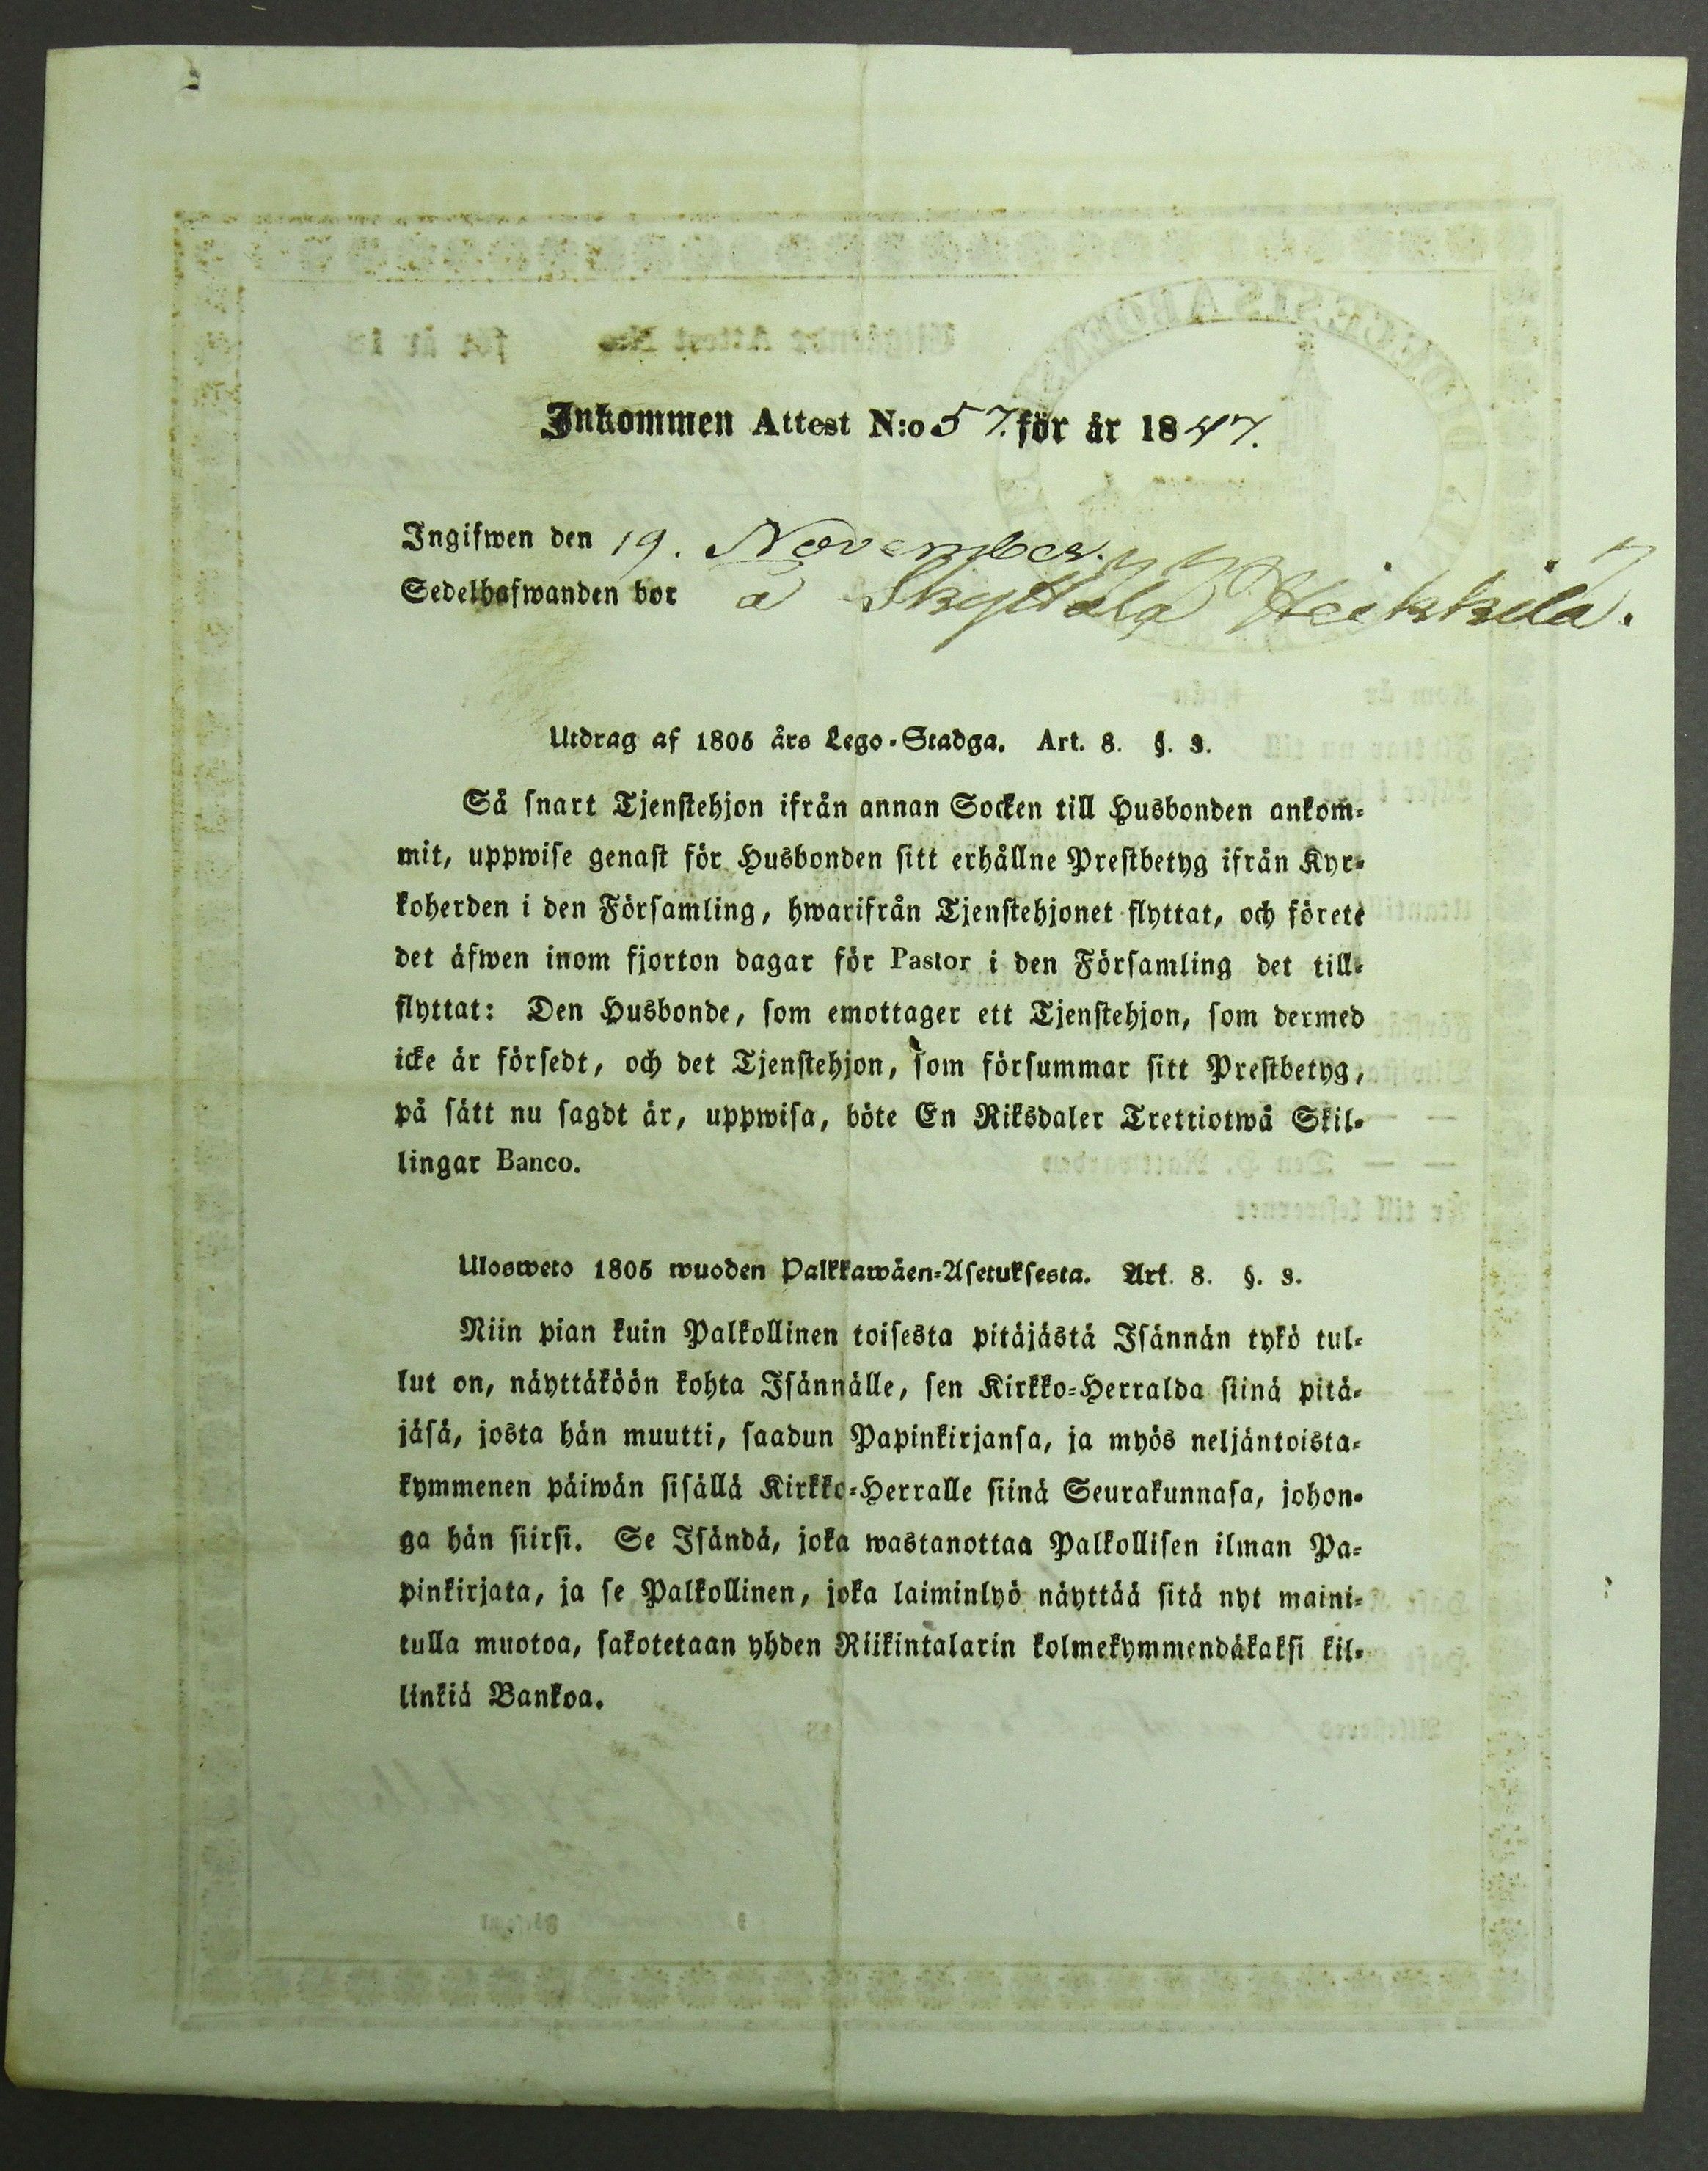 Inkommen Attest N:o 57. för år 1847.
Ingifwen den 19. November.
Sedelhafwanden bor å Skyttälä Heikkilä.
Utdrag af 1805 års Lego-Stadga. Art. 8. §. 3.
Så snart Tjenstehjon ifrån annan Socken till Husbonden ankom-
mit, uppwise genast för Husbonden sitt erhållne Prestbetyg ifrån Kyr-
koherden i den Församling, hwarifrån Tjenstehjonet flyttat, och förete
det äfwen inom fjorton dagar för Pastor i den Församling det till-
flyttat: Den Husbonde, som emottager ett Tjenstehjon, som dermed
icke är försedt, och det Tjenstehjon, som försummar sitt Prestbetyg,
på sätt nu sagdt är, uppwisa, böte En Riksdaler Trettiotwå Skil-
lingar Banco.
Ulosweto 1805 wuoden Palkkawäen-Asetuksesta. Art. 8. §. 3.
Niin pian kuin Palkollinen toisesta pitäjästä Isännän tykö tul-
lut on, näyttäköön kohta Isännälle, sen Kirkko-Herralda siinä pitä-
jäsä, josta hän muutti, saadun Papinkirjansa, ja myös neljäntoista-
kymmenen päiwän sisällä Kirkko-Herralle siinä Seurakunnasa, johon-
ga hän siirsi. Se Isändä, joka wastanottaa Palkollisen ilman Pa-
pinkirjata, ja se Palkollinen, joka laiminlyö näyttää sitä nyt maini-
tulla muotoa, sakotetaan yhden Riikintalarin kolmekymmendäkaksi kil-
linkiä Bankoa.